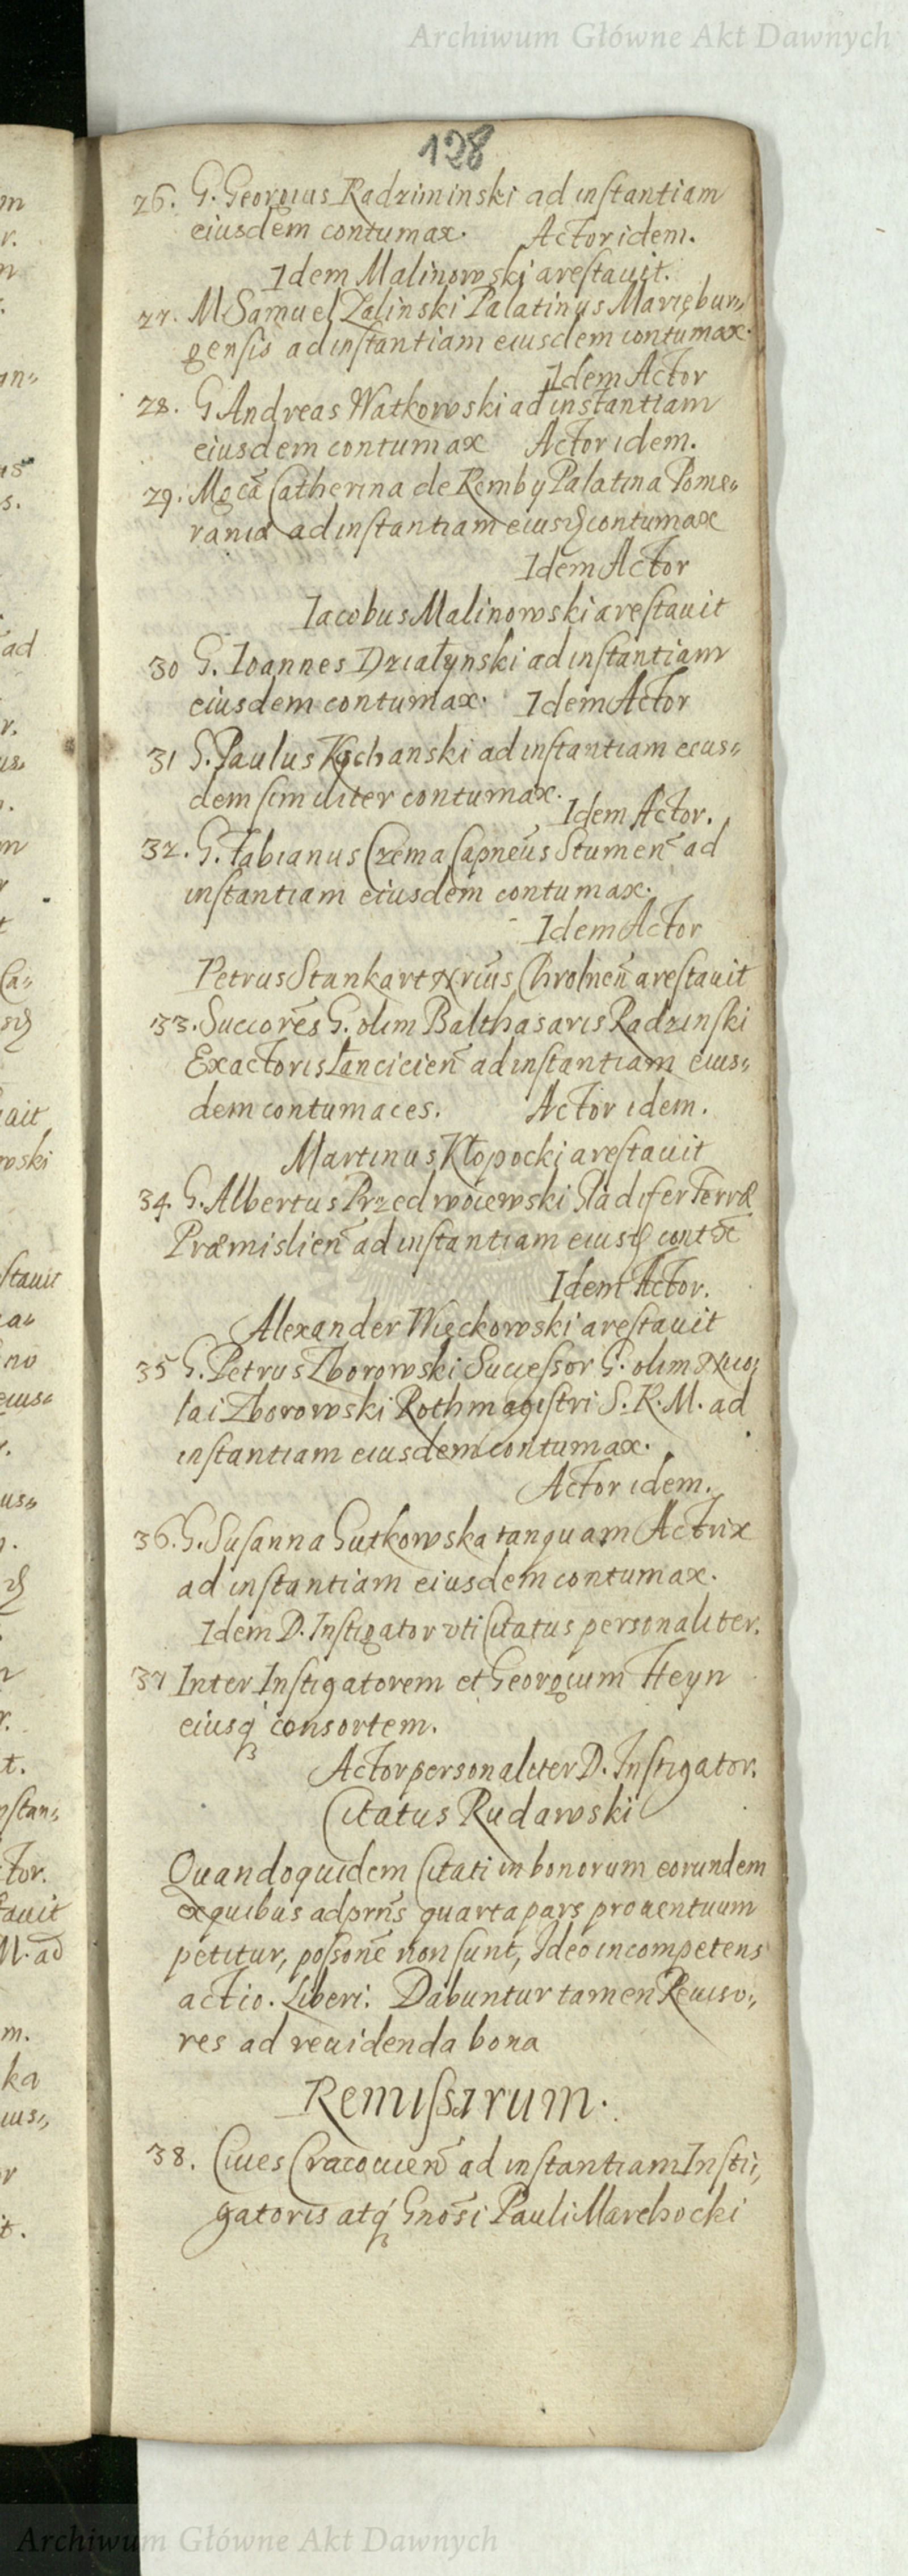 Archiwum Główne Akt Dawnych
128
26. G. Georgius Radziminski ad instantiam
eiusdem contumax. Actor idem.
Idem Malinowski arestauit.
27. M Samuel Zalinski Palatinus Mariębur„
gensis ad instantiam eiusdem contumax.
Idem Actor
28. G Andreas Watkowski ad instantiam
eiusdem contumax Actor idem.
29. Mgcã Catherina de Remby Palatina Pome„
raniæ ad instantiam eiusd contumax
Idem Actor
Iacobus Malinowski arestauit
30 G. Ioannes Działynski ad instantiam
eiusdem contumax. Idem Actor
31 G. Paulus Kochanski ad instantiam eius„
dem similiter contumax.
Idem Actor.
32. G. Fabianus Czema Capneus Stumeñ ad
instantiam eiusdem contumax.
Idem Actor
Petrus Stankart arestauit
33. Succores G. olim Balthasaris Radzinski
Exactoris Lancicieñ ad instantiam eius„
dem contumaces. Actor idem.
Martinus Kłopocki arestauit
34. G. Albertus Przedwoiewski Gladifer Terræ
Præmislieñ ad instantiam eiusd contx
Idem Actor.
Alexander Więckowski arestauit
35 G. Petrus Zborowski Successor G. olim Nico„
lai Zborowski Rothmagistri S. R. M. ad
instantiam eiusdem contumax.
Actor idem.
36. G. Susanna Gutkowska tanquam Actrix
ad instantiam eiusdem contumax.
Idem D. Instigator vti Citatus personaliter.
37 Inter Instigatorem et Georgium Heyn
eiusq consortem.
Actor personaliter D. Instigator.
Citatus Rudawski
Quandoquidem Citati in bonorum eorundem
ex quibus ad prns quarta pars prouentuum
petitur, possone non sunt, Ideo incompetens
actio. Liberi. Dabuntur tamen Reuiso„
res ad reuidenda bona
Remissarum.
38. Ciues Cracouieñ ad instantiam Insti„
gatoris atq Gnosi Pauli Marchocki
Archiwum Główne Akt Dawnych